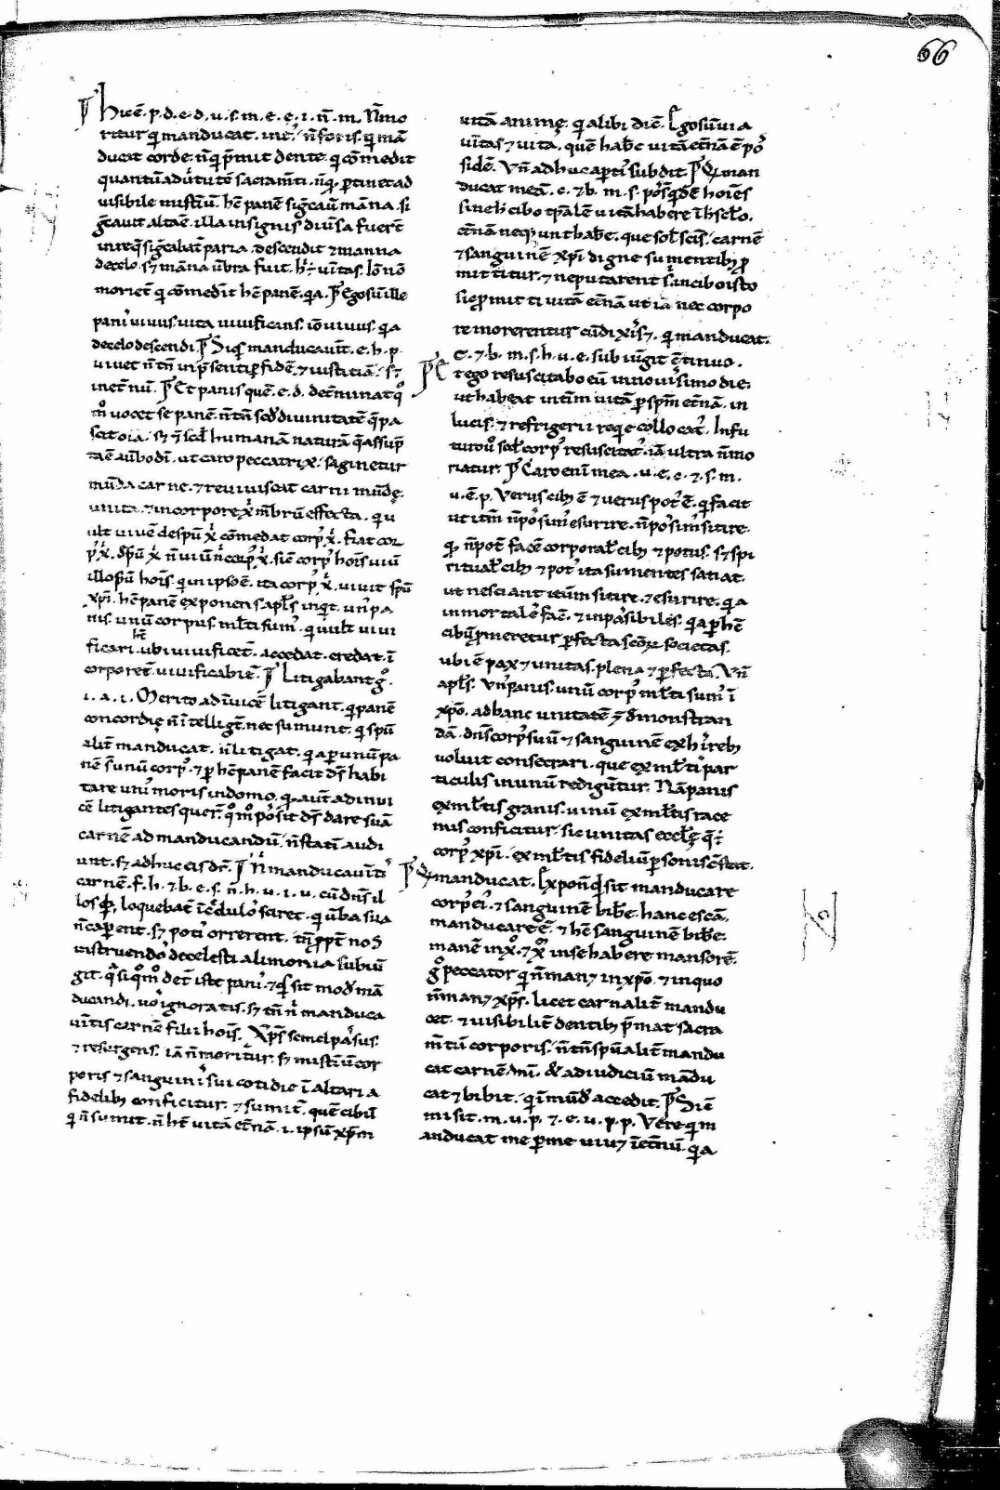 66
¶ hic ē. p. d. e. d. u. s. m. e. e. i. n̄. m. N̄ mo
ritur qi manducat. intꝰ. n̄ foris. qi mā
ducat corde. n̄ qi p̄mit dente. qi cōmedit
quantū ad uirtutē sacram̄ti. n̄ qi ptinet ad
uisibile mistiū. hc̄ panē siḡcauit māna. si
ḡcauit altaē. illa in signis diuisa fuer̄t
descendit & manna
decelo. sꝫ māna ūbra fuit. h̄. ueritas. Iō nō
morietᷣ qi cōmedit hc̄ panē. qa. ¶ Ego sū ille
panis uiuus. uita uiuificans. iō uiuus. qa
decelo descendi ¶ Si qis manducauit̄. e. h. p.
uiuet n̄ tn̄ in p̄senti ꝑ fidē. & iustitiā. sꝫ
inet̄nū. ¶ Et panis quē. e. d. det̄minat qo
mō uocet se panē. n̄ tn̄ scd̄ diuinitatē q̄ pa
scit oīa. sꝫ & scd̄ humanā naturā q̄ assūp
ta ē a ūbo di. ut caro peccatrix. saginetur
mūda carne. & reuiuiscat carni mūdę.
unita. & in corpore xi mēbrū effecta. qi u
ult uiuē de spū xi cōmedat corpꝰ xi. fiat cor
pꝰ xi. spū xi n̄ uiuit n̄ corpꝰ xi. sic̄ corpꝰ hoīs uiuit
illo spū hoīs. qi in ipso ē. ita corpꝰ xi uiuit spū
xpi. hc̄ panē exponens apls̄ inqit. un̄ pa
nis. unū corpus. ml̄ti sumꝰ. qi uult uiui
ficari. ubi uiuificet̄. accedat. credat. ī
corporet̄. uiuificabit̄. ¶ Litigabant gͦ.
i. a. i. Merito ad īuicē litigant. qi panē
concordię n̄ intelligt̄. nec sumunt. qi spū
alit̄ manducat. n̄ litigat. qa ꝑ unū pa
nē sꝰ unū corpꝰ. & ꝑ hc̄ panē facit ds̄ habi
tare uniꝰ moris in domo. qi aut̄ ad inui
cē litigantes quer̄. qomō posit ds̄ dare suā
carnē ad manducandū. n̄ statī audi
unt. sꝫ adhuc eis dr̄. ¶ Ni manducauit̄is
carnē. f. h. & b. e. s. n̄. h. u. i. u. cū dn̄s il
los
n̄ caꝑent. sꝫ potiꝰ orrerent. tn̄ ꝓpt̄ nos
instruendo de celesti alimonia subiū
git. q̄si qomō det̄ iste panis. & qis sit modꝰ mā
ducandi. uos ignoratis. sꝫ tn̄ ni manduca
uit̄is carnē filii hoīs. Xps̄ semel pasus.
& resurgens. iā n̄ moritur. sꝫ mistiū cor
poris & sanguinis sui cotidie ī altaria
fidelibꝰ conficitur. & sumit̄. quē cibū
qi n̄ sumit. n̄ ht̄ uitā et̄nam. i. ipsum xpm̄
uitā animę. qi alibi dic̄. Ego sū uia
uītas & uita. quē habē uitā et̄nā ē pō
sidē. Vn̄ adhuc apti subdit. ¶ Qi man
ducat meā. c. & b. m. s. posqdē hoīes
sine h̄ cibo tp̄alē uitā habere ī h̄ seclo.
et̄nā neqeunt habē. que soli scīs. carnē
& sanguinē xpi digne sumentibꝰ ꝓ
mittitur. & ne putarent sī in cibo isto
sic ꝓmitti uitā et̄nā ut iā nec corpo
re morerentur. cū dixisꝫ. qi manducat.
c. & b. m. s. h. u. e. subiūgit ētinuo.
¶ Et ego resuscitabo eū in nouisimo die.
ut habeat inte̅im uitā ꝑ spm̄ et̄nā. in
lucis. & refrigerii reqe collocatꝰ. In fu
turo u scdm̄ corpꝰ resuscitatꝰ. iā ultra n̄ mo
riatur. ¶ Caro enī mea. u. e. c. & s. m.
u. ē. p. Verus cibꝰ ē & uerus potꝰ ē. qi facit
ut it̄m n̄ posimꝰ esurire. n̄ posimꝰ sitire.
qi n̄ pot̄ facē corporalꝰ cibꝰ & potus. sꝫ spi
ritualꝰ cibꝰ & potꝰ ita sumentes satiat.
ut nesciant itūm sitire. & esurire. qa
inmortalēs facit. & inpasibiles. qa ꝑ hc̄
cibū ꝓmeretur ꝑfecta scōꝝ societas.
ubi ē pax & unitas. plena & ꝑfecta. Vn̄
apls̄. Vn̄ panis. unū corpꝰ ml̄ti sumꝰ ī
xpo. ad hanc unitatē demonstran
dā. dn̄s corpꝰ suū & sanguinē ex hiꝰ rebꝰ
uoluit consecrari. que ex ml̄tis par
ticulis in unū rediguntur. Nā panis
ex ml̄tis granis. uinū ex ml̄tis race
mis conficitur. sic unitas eccle̅ę q̄.
corpꝰ xpi. ex ml̄tis fidelium ꝑsonis c̄stat.
¶ Qi manducat. Expon̄ qid sit manducare
corpꝰ ei. & sanguinē bibē. hanc escā.
manducare ē. & hc̄ sanguinē bibē.
manē in xo. & xm in se habere mansorē.
gͦ peccator qi n̄ man& in xpo. & in quo
n̄ man& xps̄. licet carnalit̄ mandu
cet. & uisibilit̄ dentibꝰ p̄mat sacra
m̄tū corporis. n̄ tn̄ spūalit̄ mandu
cat carnē dn̄i. & ad iudiciū mādu
cat & bibit. qi īmūdꝰ accedit. ¶ Sic̄
misit. m. u. p. & e. u. p. p. Vere qi m
anducat me ꝑ me uiu& ī et̄nū. qa